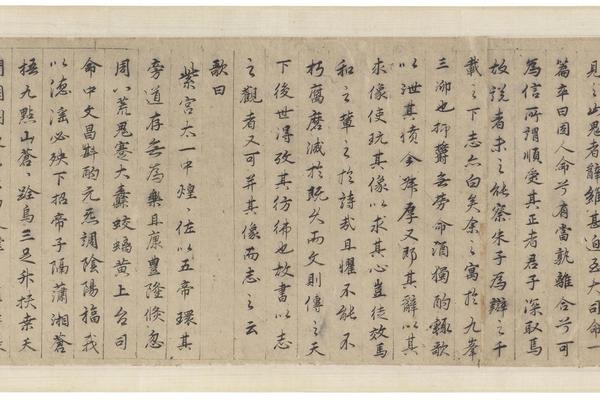 見之此思者辭雖甚迫至大司命一
篇卒曰固人命兮有當孰離合兮可
爲信所謂順受其正者君子深取焉
放說者未之能察朱子爲辯之千
載之下志六白矣余之寓於九峯
三泖也抑鬱無旁命酒獨酌輙歌
以泄其憤金華摩又即其辭以其
求像使玩其像以求其心豈徒效馬
和之輩之於詩哉且懼不能不
朽腐磨滅於既久而文則傳之天
下後世得攷其彷彿也故書以志
之觀者又可并其像而志之云
歌曰
紫宮太一中煌〻佐以五帝環其
旁道存無爲樂且康豊隆倏忽
周八荒鬼蹇大纛蛟螭黃上台司
命中文昌斟酌元炁調陰陽福我
以德滛必殃下招帝子隔瀟湘蒼
梧九點山蒼〻跧烏三足升扶桑天